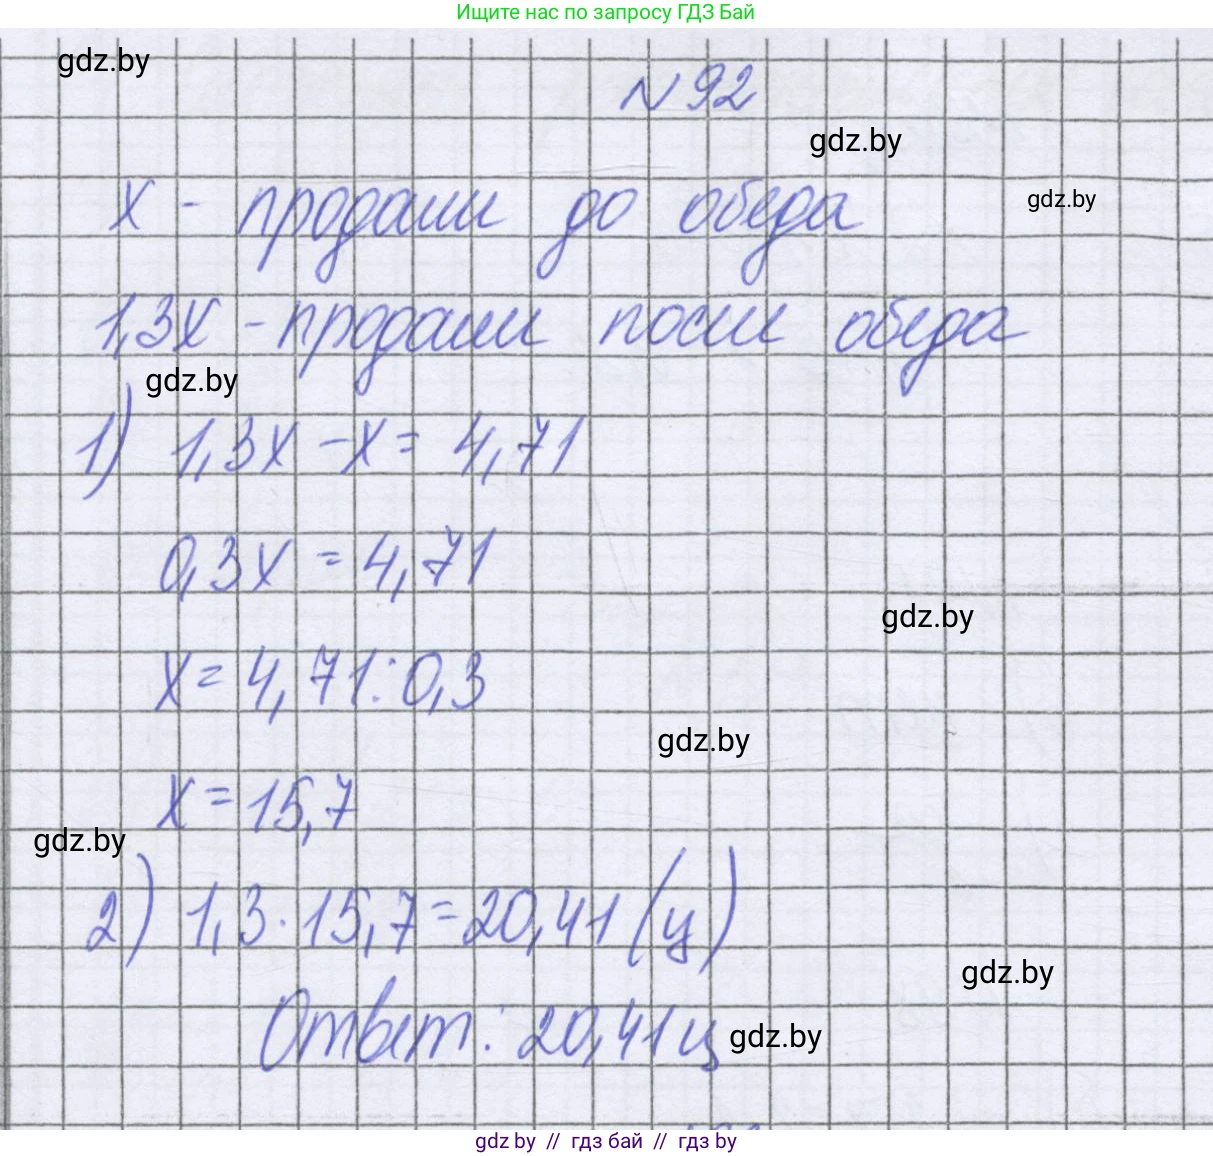 Ищите нас по запросу ГДЗ Бай
gdz.by
№ 92
gdz.by
х - продали до обеда
gdz.by
1,3х - продали после обеда
gdz.by
1) 1,3х - х = 4,71
0,3х = 4,71
gdz.by
х = 4,71 : 0,3
gdz.by
х = 15,7
gdz.by
2) 1,3 · 15,7 = 20,41 (ц)
gdz.by
Ответ: 20,41 ц
gdz.by
gdz by // гдз бай // гдз by